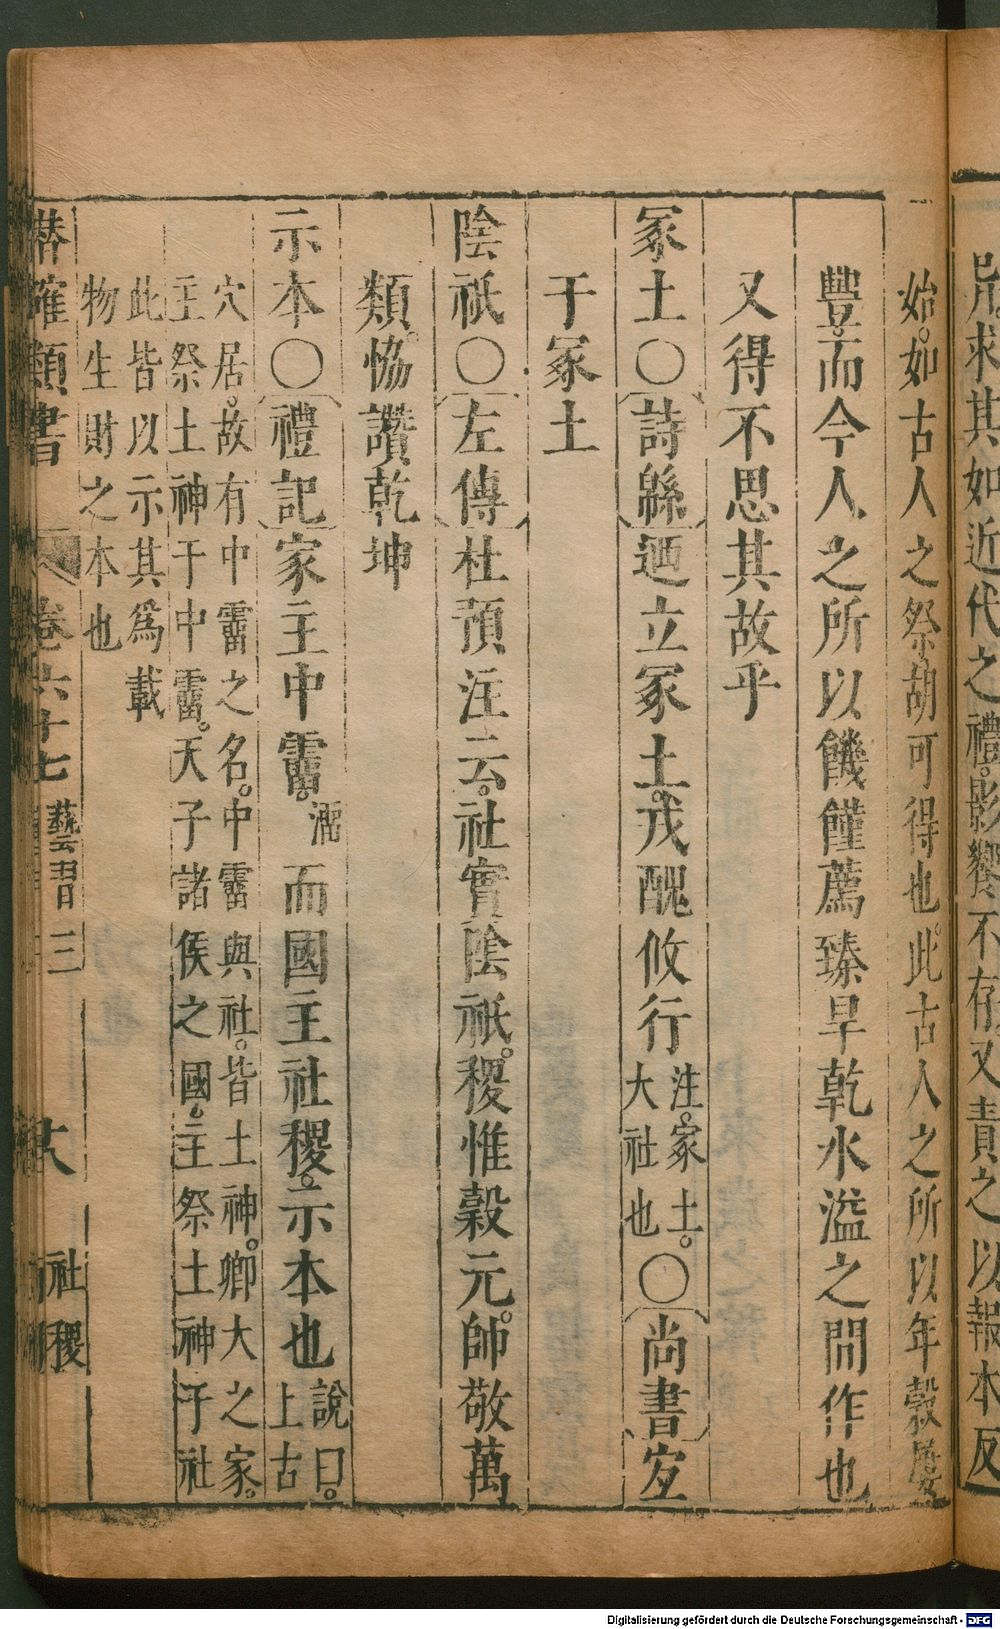 別求其如近代之禮影響不存又責之以報本反
始如古人之祭胡可得也此古人之所以年穀屢
豐而今人之所以饑饉薦臻旱乾水溢之間作也
又得不思其故乎
冢土○詩緜迺立冢土戎醜攸行注冢土大社也○尚書宐
于冢土
陰祇○左傳杜預注云社實陰祇稷惟穀元帥敬萬
類恊讚乾坤
示本○禮記家主中霤溜而國主社稷示本也說曰上古
穴居故有中霤之名中霤與社皆土神卿大之家
主祭土神于中霤天子諸侯之國主祭土神于社
此皆以示其爲載
物生財之本也
潛確類書 卷六十七 藝習三 社稷 大
Digitalisierung gefördert durch die Deutsche Forschungsgemeinschaft - DFG